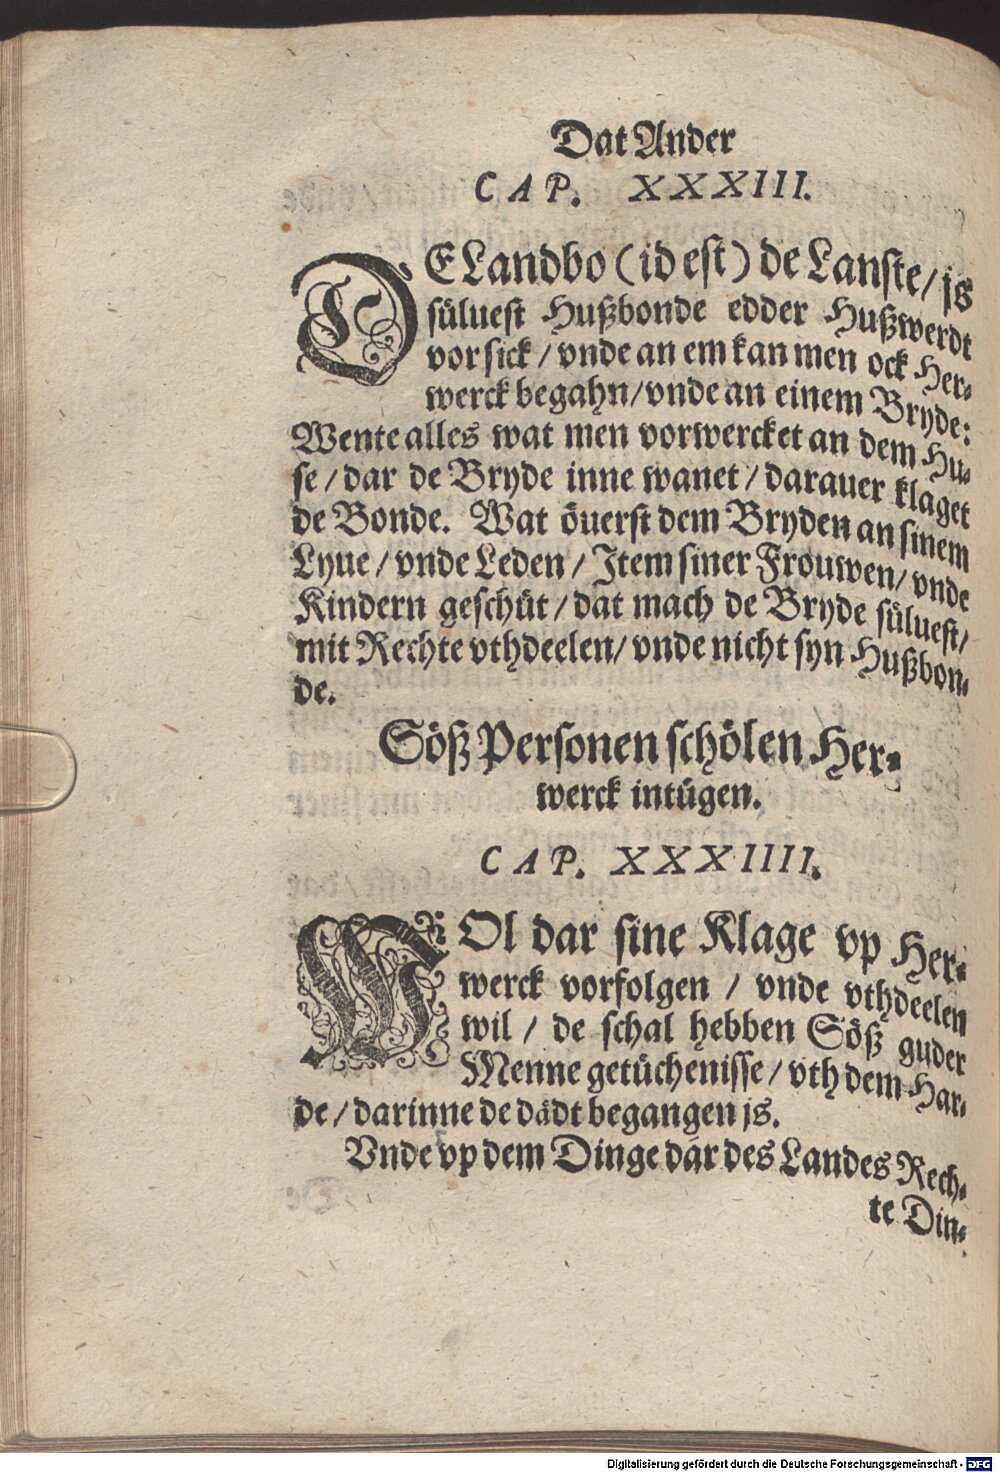 Dat Ander
CAP. XXXIII.
DE Landbo (id est) de Lanste / js
süluest Hußbonde edder Hußwerdt
vor sick / vnde an em kan men ock Her-
werck begahn / vnde an einem Bryde:
Wente alles wat men vorwercket an dem Hu-
se / dar de Bryde inne wanet / darauer klaget
de Bonde. Wat öuerst dem Bryden an sinem
Lyue / vnde Leden / Item siner Frouwen / vnde
Kindern geschüt / dat mach de Bryde süluest /
mit Rechte vthdeelen / vnde nicht syn Hußbon-
de.
Söß Personen schölen Her-
werck intügen.
CAP. XXXIIII.
WOl dar sine Klage vp Her-
werck vorfolgen / vnde vthdeelen
wil / de schal hebben Söß guder
Menne getüchenisse / vth dem Har-
de / darinne de dådt begangen js.
Vnde vp dem Dinge dar des Landes Rech-
te Din-
Digitalisierung gefördert durch die Deutsche Forschungsgemeinschaft - DFG